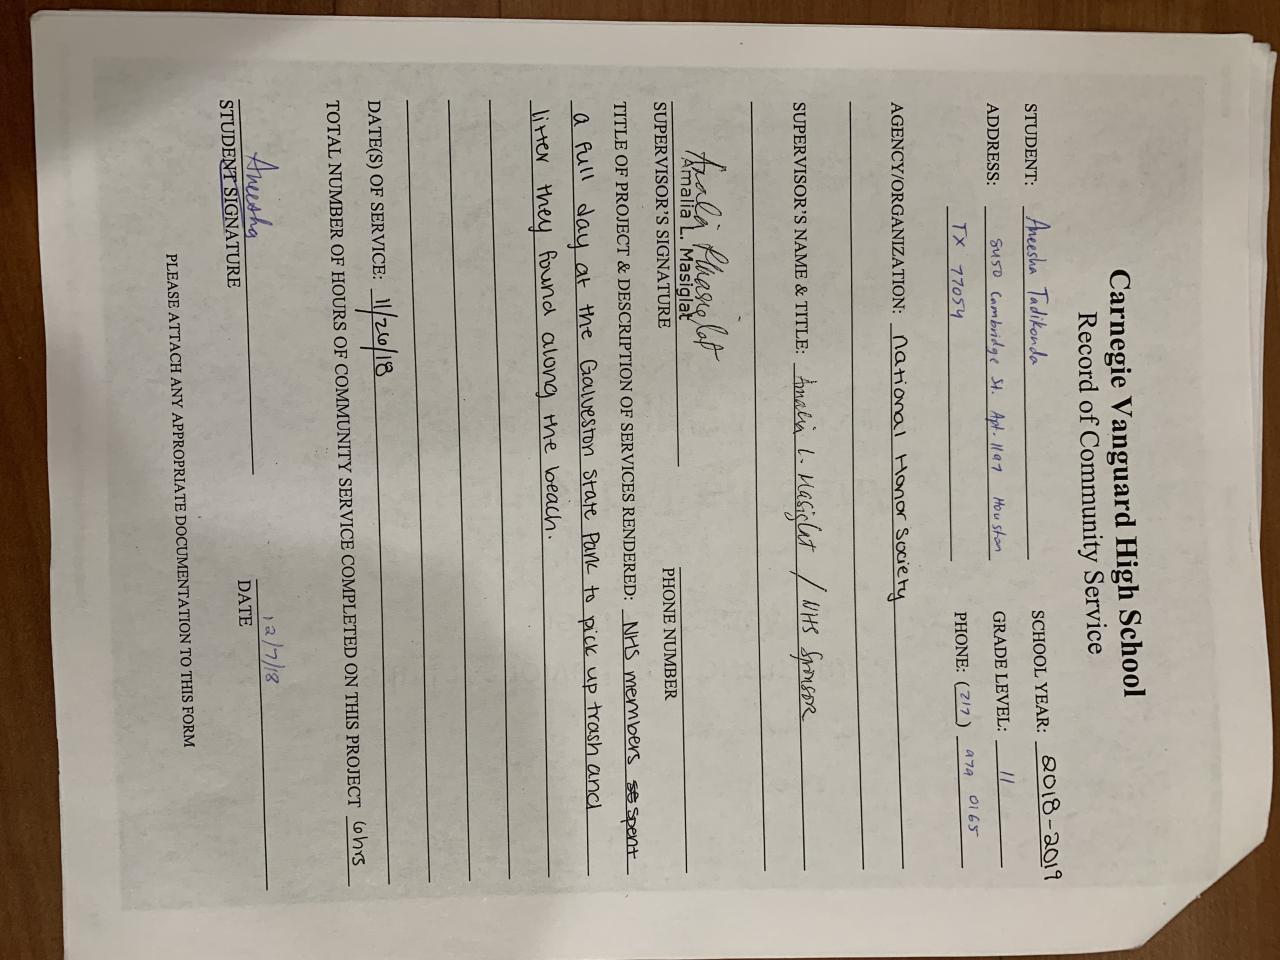 Carnegie Vanguard High School
Record of Community Service
STUDENT: Aneesha Tadikonda SCHOOL YEAR: 2018-2019
ADDRESS: 8450 Cambridge St. Apt. 1197 Houston GRADE LEVEL: 11
TX 77054 PHONE: (717) 979 0165
AGENCY/ORGANIZATION: National Honor Society
SUPERVISOR'S NAME & TITLE: Amalia L. Masiglat / NHS Sponsor
Amalia Masiglat
Amalia L. Masiglat
SUPERVISOR'S SIGNATURE PHONE NUMBER
TITLE OF PROJECT & DESCRIPTION OF SERVICES RENDERED: NHS members spent
a full day at the Galveston State Park to pick up trash and
litter they found along the beach.
DATE(S) OF SERVICE: 11/26/18
TOTAL NUMBER OF HOURS OF COMMUNITY SERVICE COMPLETED ON THIS PROJECT 6hrs
Aneesha 12/7/18
STUDENT SIGNATURE DATE
PLEASE ATTACH ANY APPROPRIATE DOCUMENTATION TO THIS FORM